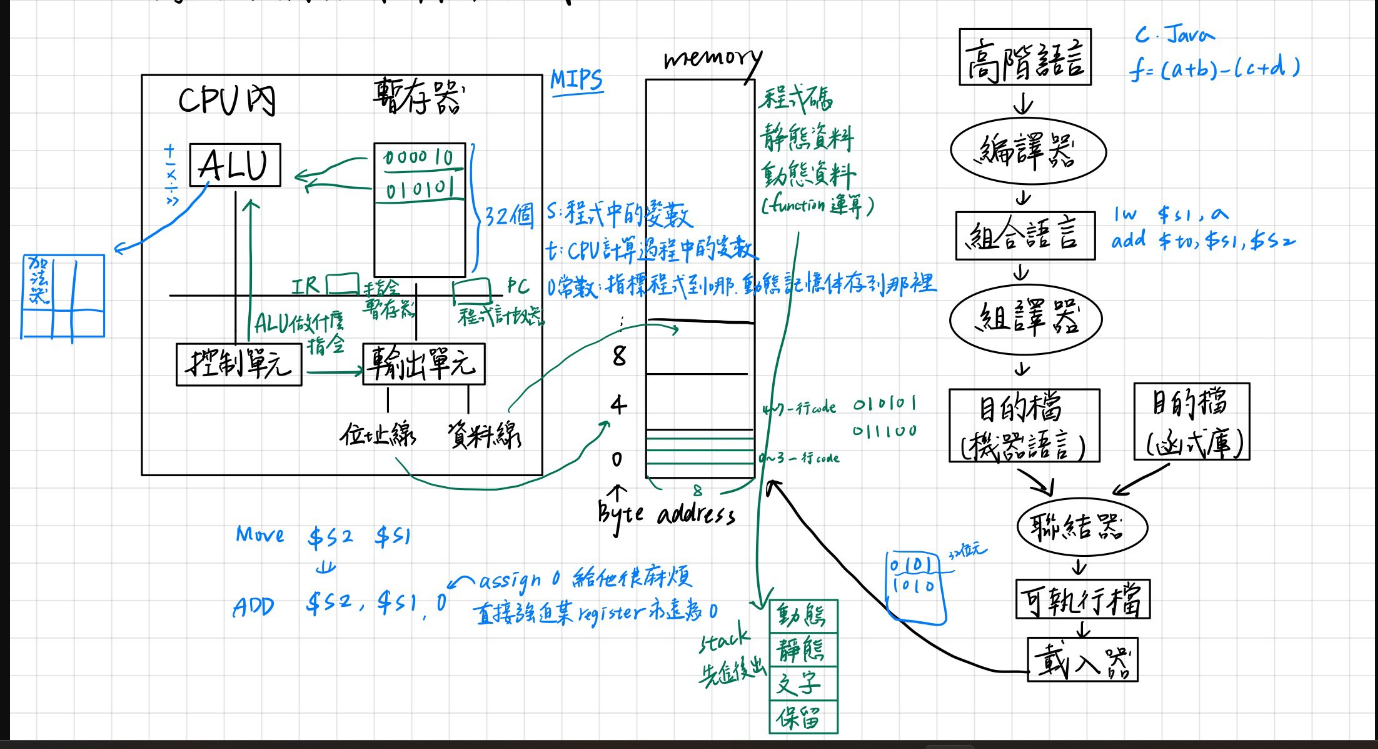 CPU內
暫存器
MIPS
ALU
+
-
×
÷
>>
000010
010101
32個
S:程式中的變數
t:CPU計算過程中的變數
0常數:指標程式到哪.動態記憶体存到那裡
加法器
IR
指令
暫存器
PC
程式計數器
ALU做什麼
指令
控制單元
輸出單元
位址線
資料線
memory
程式碼
靜態資料
動態資料
(function 運算)
:
8
4
0
4~7一行code
010101
011100
0~3一行code
8
Byte address
Move $S2 $S1
ADD $S2, $S1, 0
assign 0 給他很麻煩
直接強迫某register永遠為0
stack
先進後出
動態
靜態
文字
保留
高階語言
C. Java
f=(a+b)-(c+d)
編譯器
組合語言
lw $s1, a
add $t0, $S1, $S2
組譯器
目的檔
(機器語言)
目的檔
(函式庫)
聯結器
0101
1010
32位元
可執行檔
載入器